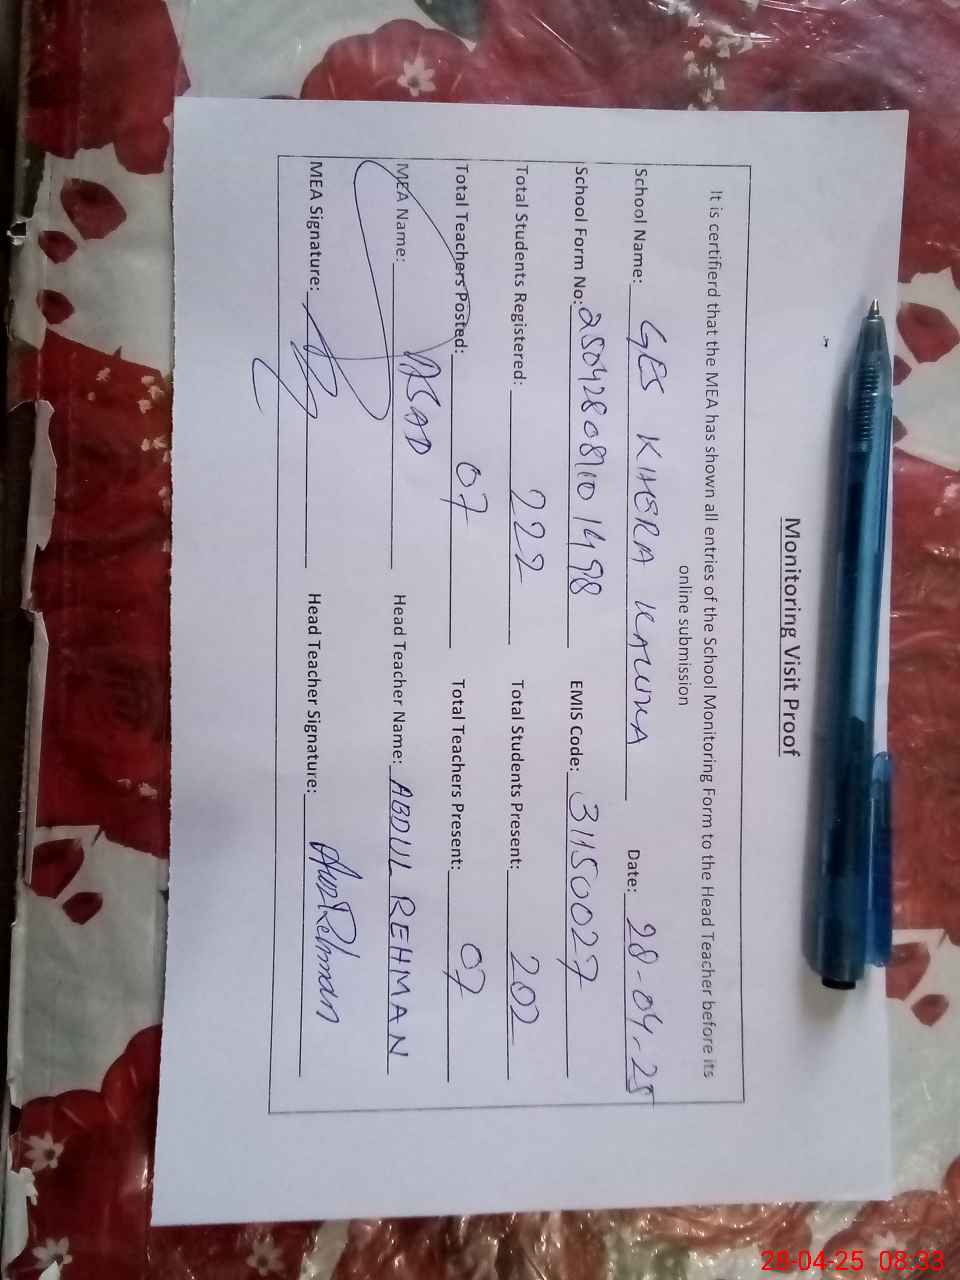 Monitoring Visit Proof
It is certifierd that the MEA has shown all entries of the School Monitoring Form to the Head Teacher before its
online submission
School Name: GES KHERA KALUKA Date: 28-04-25
School Form No: 25042808101498 EMIS Code: 31150027
Total Students Registered: 222 Total Students Present: 202
Total Teachers Posted: 07 Total Teachers Present: 07
MEA Name: ASAD Head Teacher Name: ABDUL REHMAN
MEA Signature: Head Teacher Signature: Rehman
28-04-25 08:33